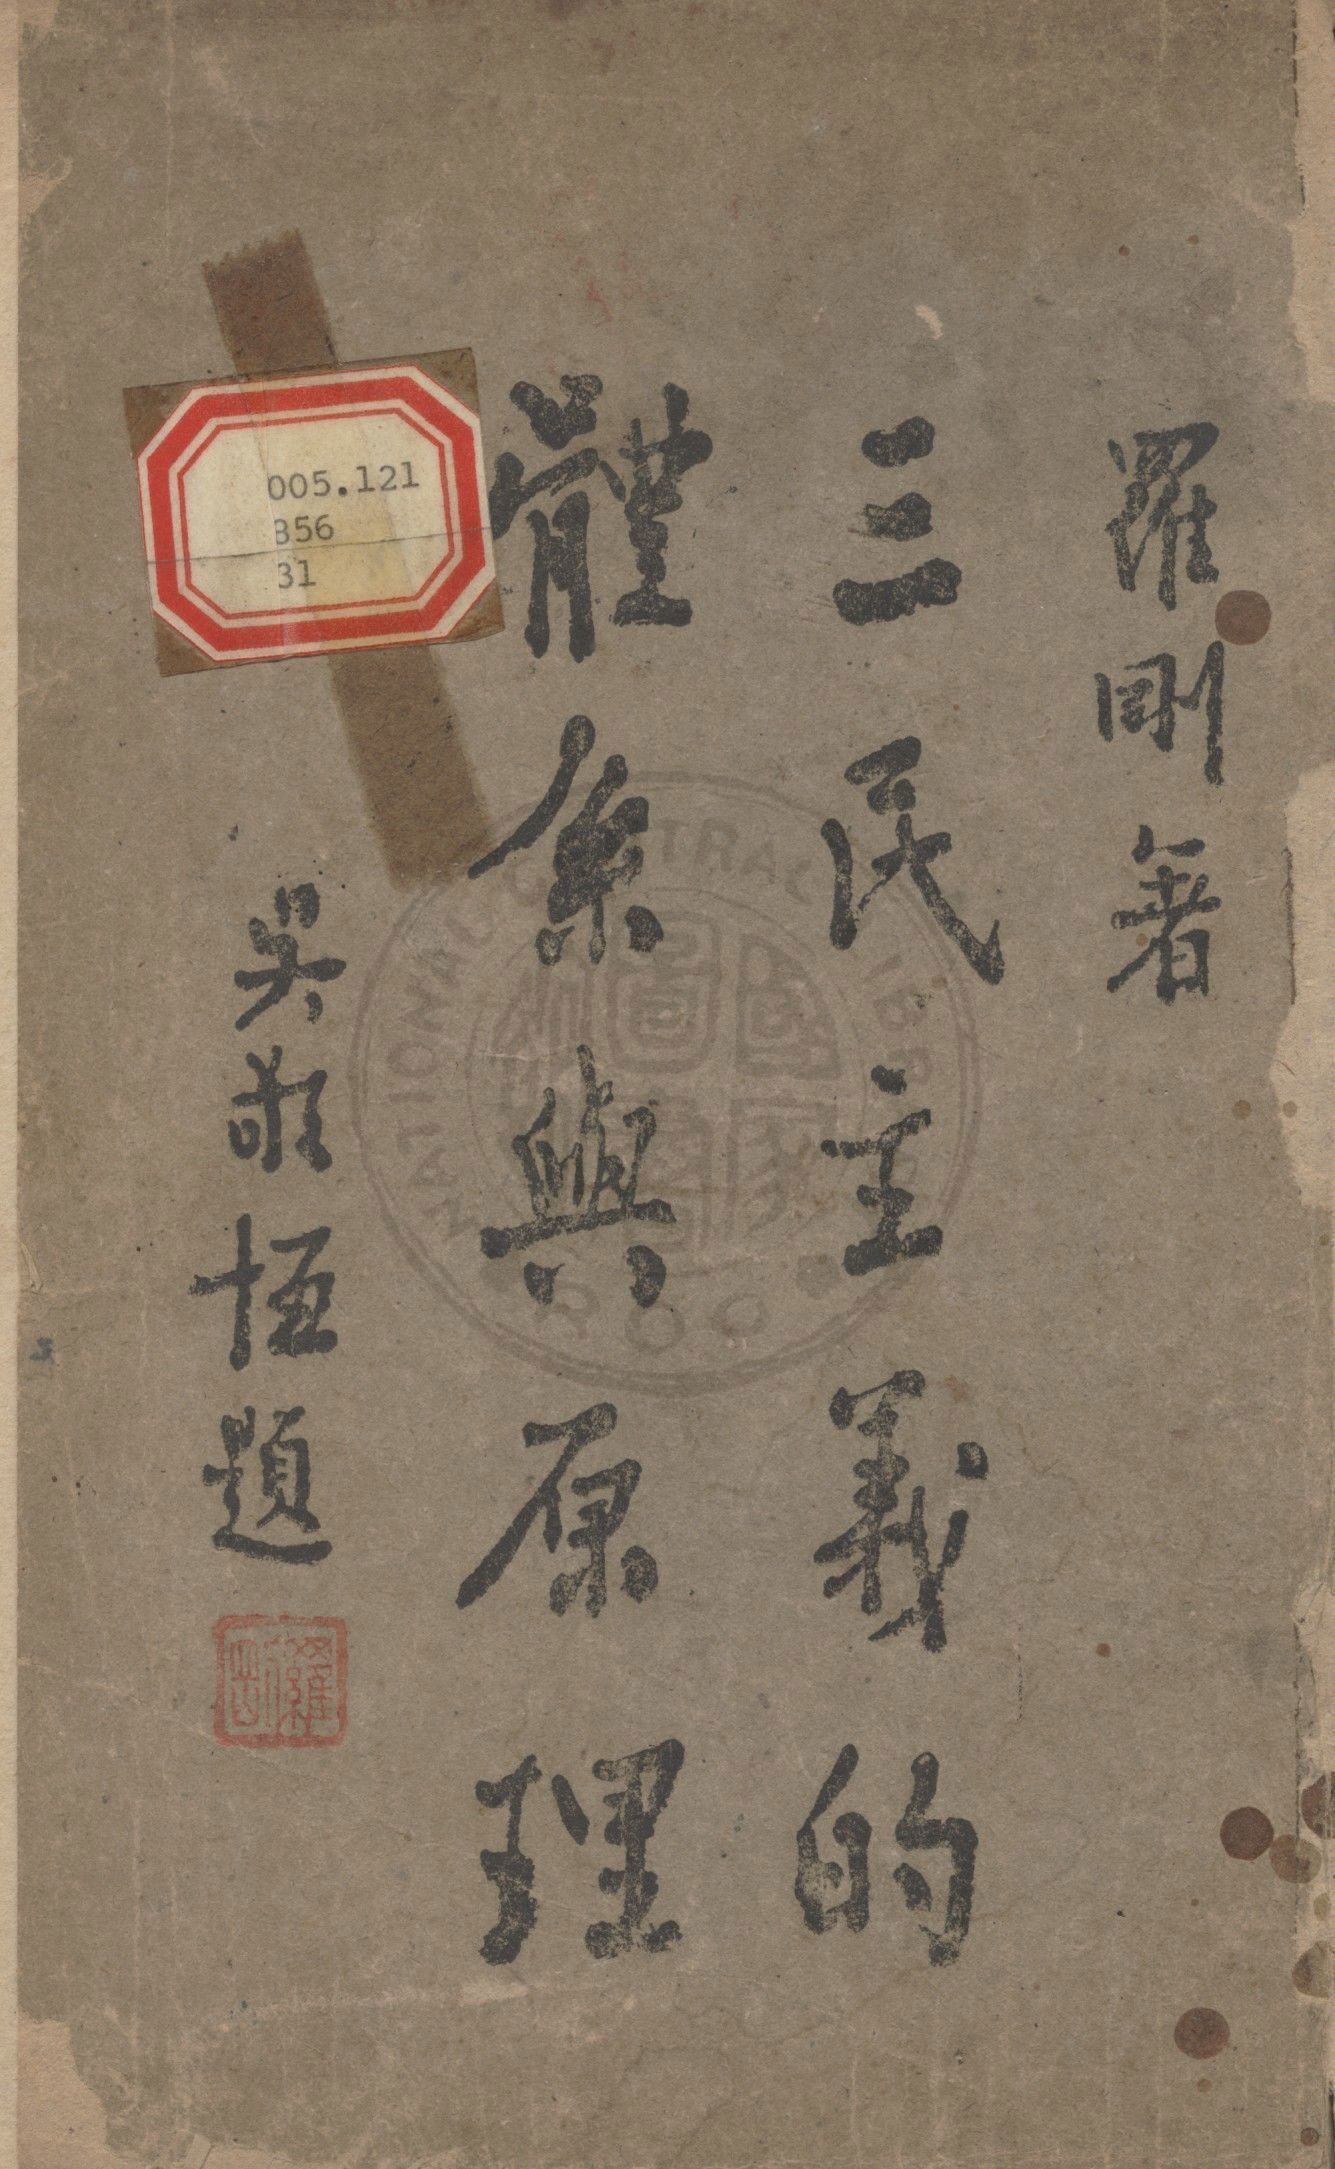 羅剛著
三民主義的
體系與原理
吳敬恆題
羅剛
005.121
856
31
NATIONAL CENTRAL LIBRARY
國家圖書館